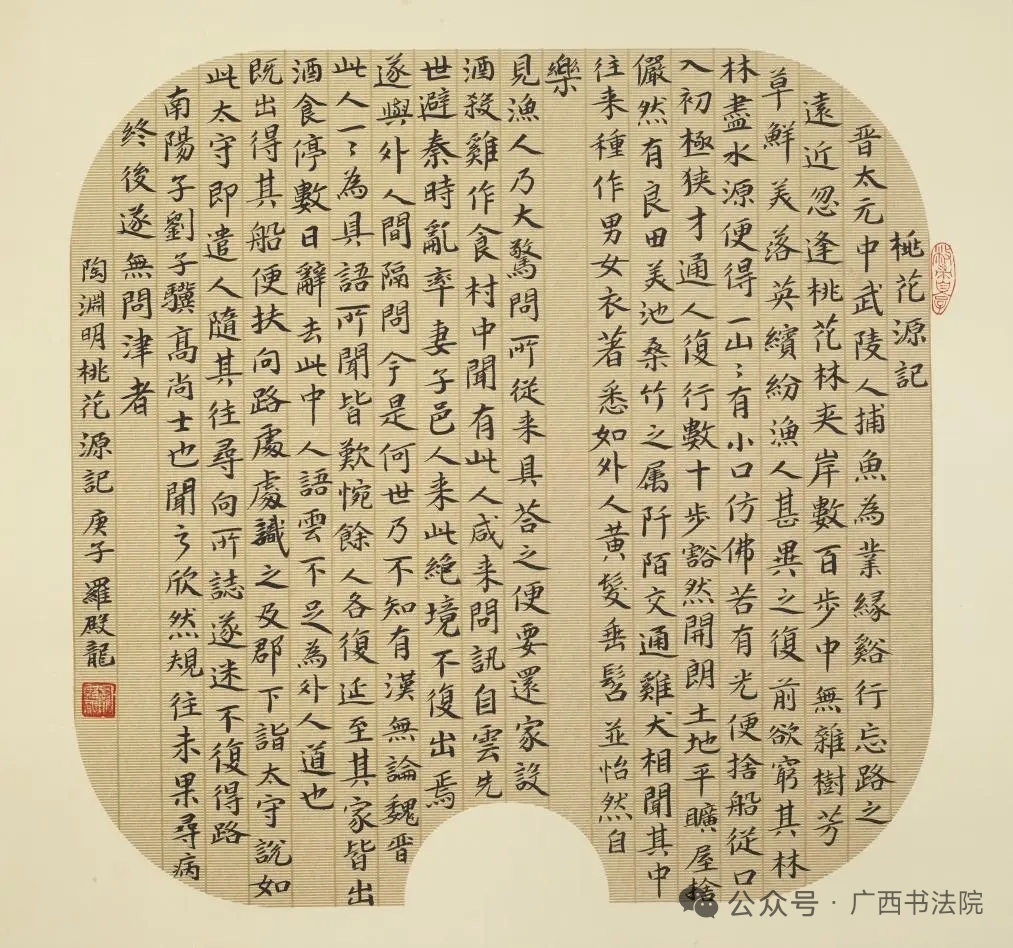 桃花源記
晋太元中武陵人捕魚為業緣谿行忘路之
遠近忽逢桃花林夹岸數百步中無雜樹芳
草鮮美落英繽紛漁人甚異之復前欲窮其林
林盡水源便得一山〻有小口仿佛若有光便捨船從口
入初極狭才通人復行數十步豁然開朗土地平曠屋捨
儼然有良田美池桑竹之属阡陌交通雞犬相聞其中
往来種作男女衣著悉如外人黄髮垂髫並怡然自
樂
見漁人乃大驚問所從来具荅之便要還家設
酒殺雞作食村中聞有此人咸来問訊自雲先
世避秦時亂率妻子邑人来此絶境不復出焉
遂與外人間隔問今是何世乃不知有漢無論魏晋
此人一〻為具語所聞皆歎惋餘人各復延至其家皆出
酒食停數日辭去此中人語雲不足為外人道也
既出得其船便扶向路處處識之及郡下詣太守說如
此太守即遣人隨其往尋向所誌遂迷不復得路
南陽子劉子驥高尚士也聞之欣然規往未果尋病
終後遂無問津者
陶淵明桃花源記 庚子 羅殿龍
公众号·广西书法院